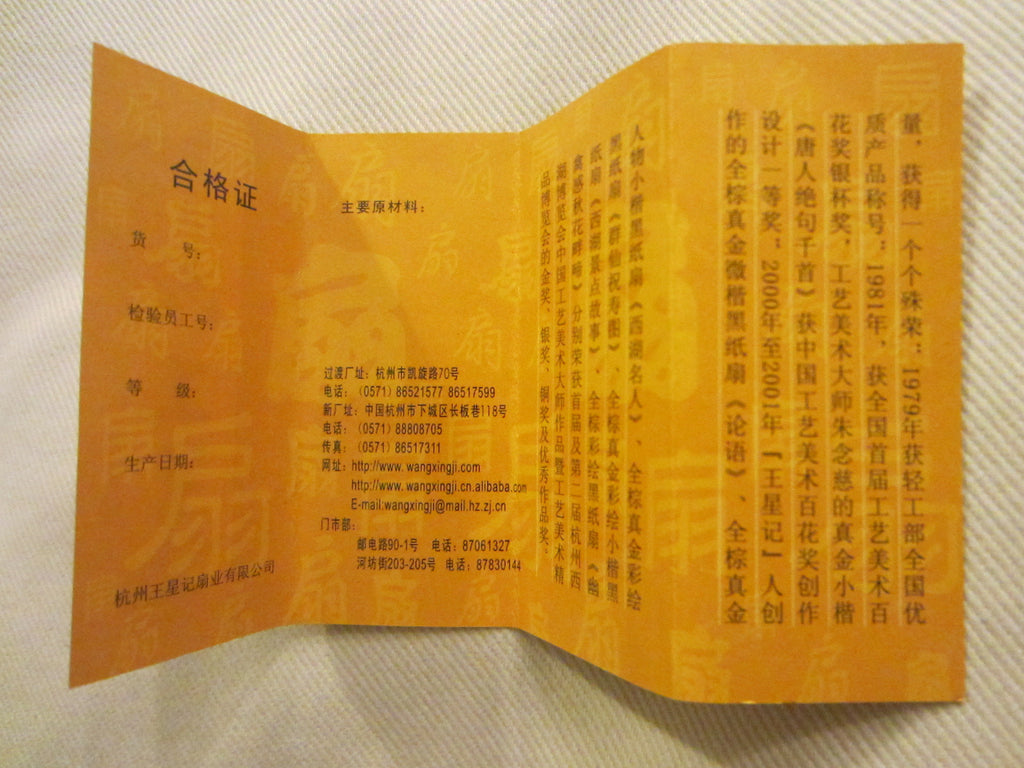 合格证
货 号：
检验员工号：
等 级：
生产日期：
杭州王星记扇业有限公司
主要原材料：
过渡厂址：杭州市凯旋路70号
电话：（0571）86521577 86517599
新厂址：中国杭州市下城区长板巷118号
电话：（0571）88808705
传真：（0571）86517311
网址：http://www.wangxingji.com
http://www.wangxingji.cn.alibaba.com
E-mail:wangxingji@mail.hz.zj.cn
门市部：
邮电路90-1号 电话：87061327
河坊街203-205号 电话：87830144
量，获得一个个殊荣：1979年获轻工部全国优
质产品称号；1981年，获全国首届工艺美术百
花奖银杯奖，工艺美术大师朱念慈的真金小楷
《唐人绝句千首》获中国工艺美术百花奖创作
设计一等奖；2000年至2001年「王星记」人创
作的全棕真金微楷黑纸扇《论语》、全棕真金
人物小楷黑纸扇《西湖名人》、全棕真金彩绘
黑纸扇《群仙祝寿图》、全棕真金彩绘小楷黑
纸扇《西湖景点故事》、全棕彩绘黑纸扇《幽
禽惑秋花畔啼》分别荣获首届及第二届杭州西
湖博览会中国工艺美术大师作品暨工艺美术精
品博览会的金奖、银奖、铜奖及优秀作品奖；